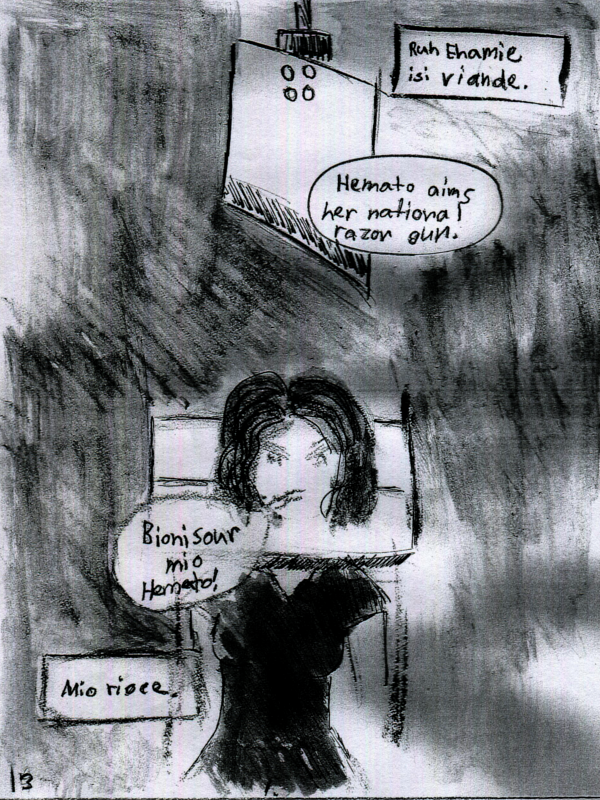 Ruh Ehamie
isi viande.
Hemato aims
her national
razor gun.
Bionisour
mio
Hemato!
Mio
13